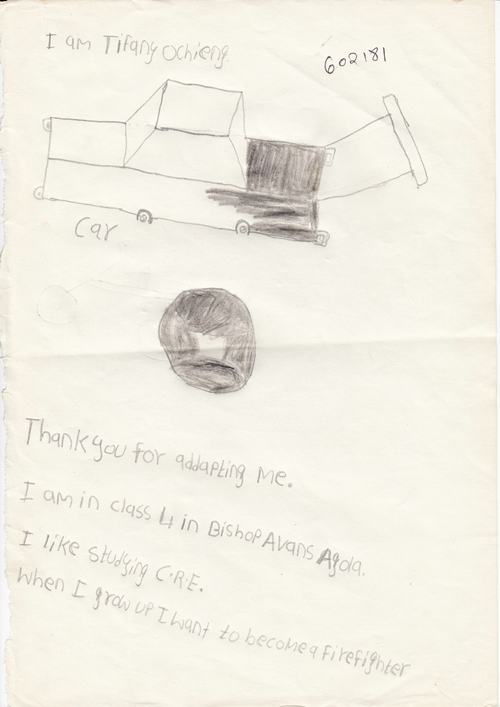 I am Tifany Ochieng
602181
Car
Thank you for addapting me.
I am in class 4 in Bishop Avans Agola.
I like studying C.R.E.
When I grow up I want to become a firefighter